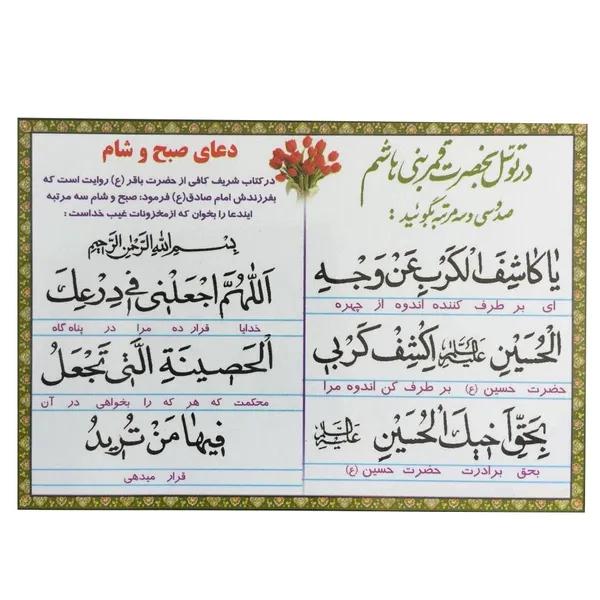 در توسل بحضرت قمر بنی هاشم
صد و سی و سه مرتبه بگوئید :
يا كاشِفَ الْكَرْبِ عَنْ وَجْهِ
ای بر طرف کننده اندوه از چهره
الْحُسَيْنِ عَلَيْهِ السَّلام اِكْشِفْ كَرْبي
حضرت حسین (ع) بر طرف کن اندوه مرا
بِحَقِّ اَخيكَ الْحُسَيْنِ عَلَيْهِ السَّلام
بحق برادرت حضرت حسین (ع)
دعای صبح و شام
در کتاب شریف کافی از حضرت باقر (ع) روایت است که
بفرزندش امام صادق(ع) فرمود: صبح و شام سه مرتبه
ایندعا را بخوان که از مخزونات غیب خداست :
بِسْمِ اللهِ الرَّحْمنِ الرَّحيمِ
اَللّهُمَّ اجْعَلْني في دِرْعِكَ
خدایا قرار ده مرا در پناه گاه
الْحَصينَةِ الَّتي تَجْعَلُ
محکمت که هر که را بخواهی در آن
فيها مَنْ تُريدُ
قرار میدهی